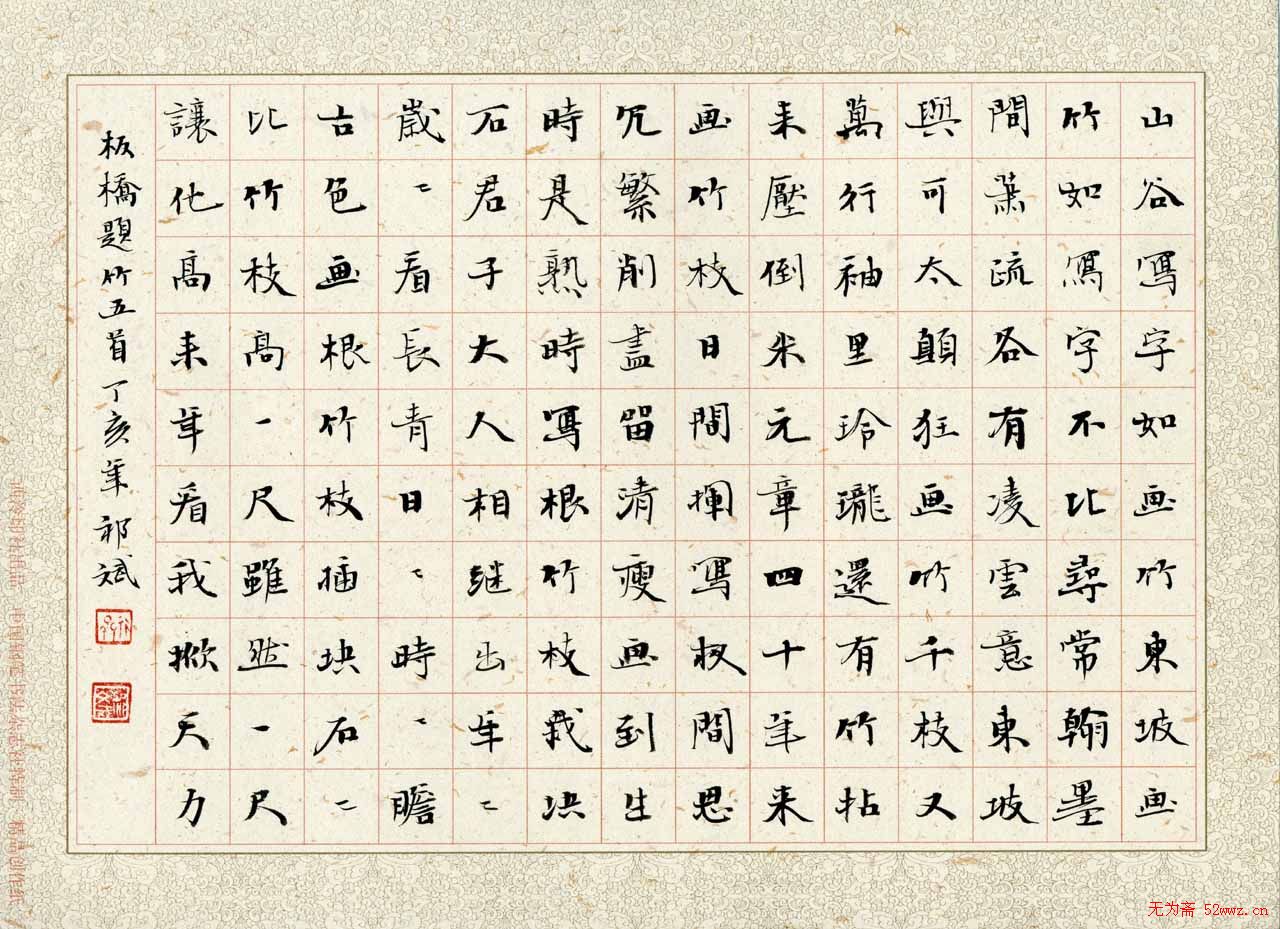 山谷寫字如画竹東坡画
竹如寫字不比尋常翰墨
間蕭疏各有凌雲意東坡
與可太顛狂画竹千枝又
萬行袖里玲瓏還有竹拈
来壓倒米元章四十年来
画竹枝日間揮寫夜間思
冗繁削盡留清瘦画到生
時是熟時寫根竹枝栽块
石君子大人相继出年〻
歲〻看長青日〻時〻瞻
古色画根竹枝插块石〻
比竹枝高一尺雖然一尺
讓他高来年看我掀天力
板橋題竹五首丁亥年祁斌
无为斋 52wwz.cn